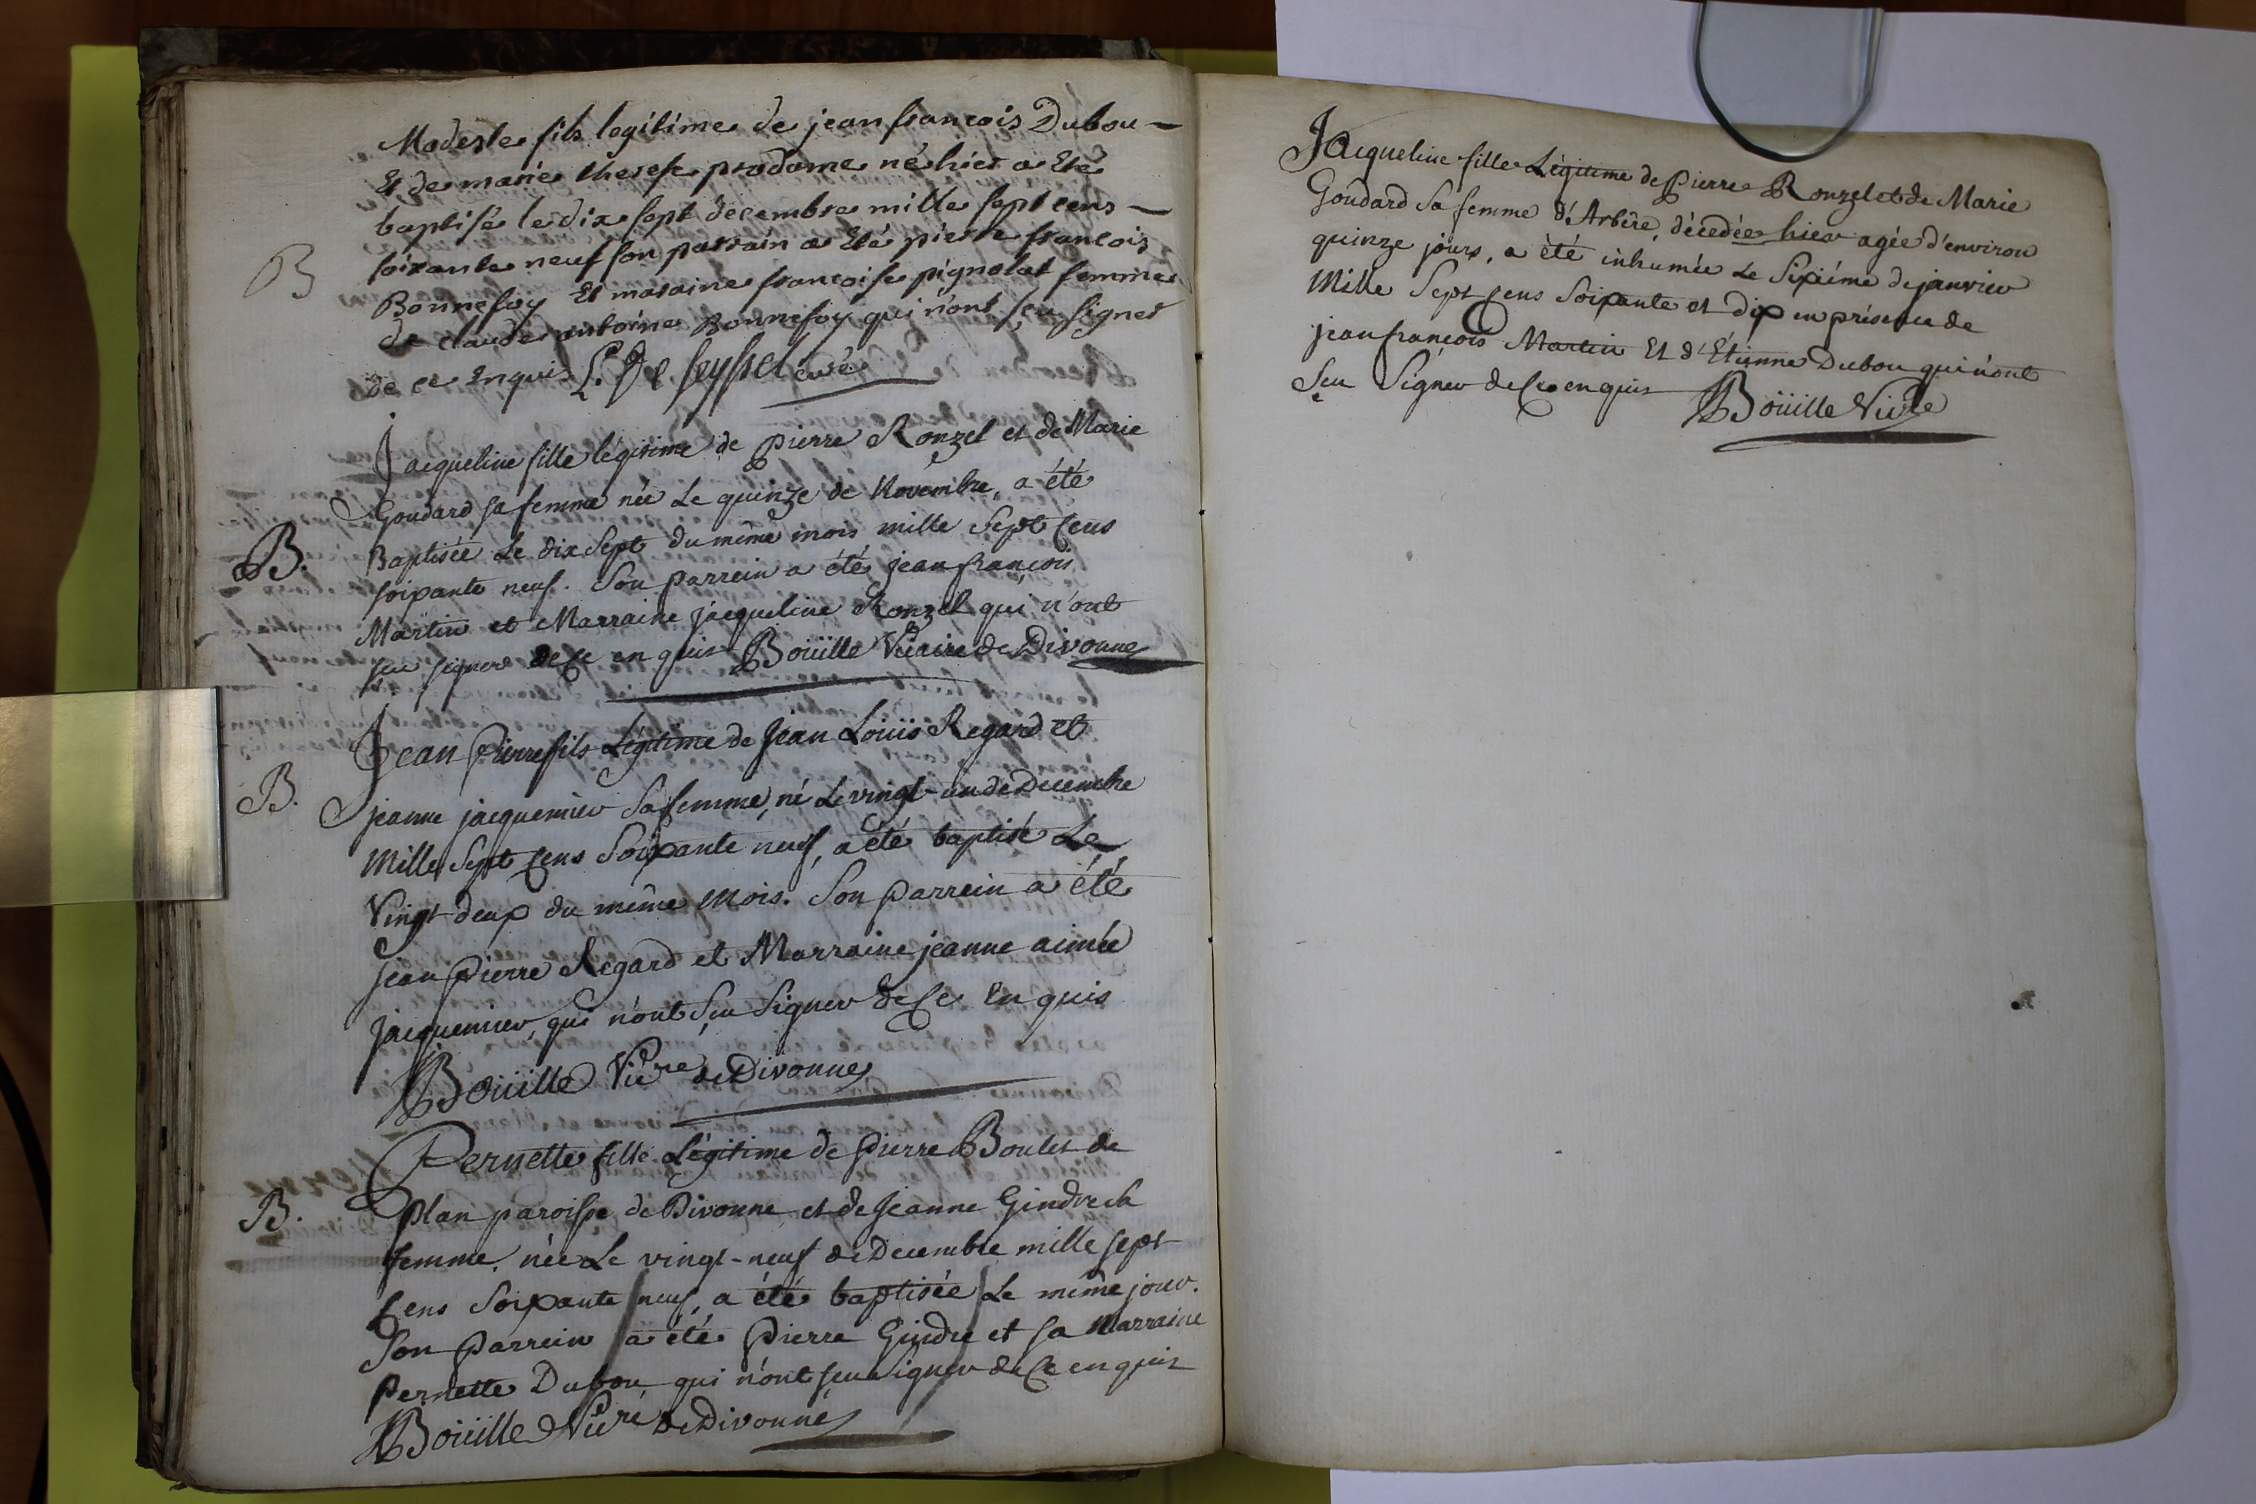 Modeste fils legitime de jean francois Dubou -
Et de marie therese prodome né hier a Eté
baptisé le dix sept decembre mille sept cens -
soixante neuf son parrain a Eté pierre francois
B
Bonnefoy Et maraine francoise pignolat femme
de claude antoine Bonnefoy qui n'ont sçu signer
de ce Enquis L. De seyssel curé
Jacqueline fille légitime de pierre Ronzel et de Marie
Goudard sa femme née Le quinze de Novembre, a été
B. Baptisée Le dix Sept du même mois mille Sept Cens
soixante neuf. Son parrein a été jean françois
Martin et Marraine jacqueline Ronzel qui n'ont
sçu signer de Ce enquis Boüille Vicaire de Divonne
Jean Pierre fils Légitime de Jean Loüis Regard et
B. jeanne jacquemier Sa femme, né Le vingt-un de Decembre
Mille Sept Cens Soixante neuf, a été baptisé Le
Vingt deux du même Mois. Son parrein a été
jean Pierre Regard et Marraine jeanne aimée
Jacquemier, qui n'ont Sçu Signer de Ce En quis
Boüille Vic.re de Divonne
Pernette fille Légitime de Pierre Boulet de
B. plan paroisse de Divonne et de Jeanne Gindre sa
femme, née Le vingt-neuf de Decembre mille sept
Cens Soixante neuf, a été baptisée Le même jour.
Son Parrein a été Pierre Gindre et sa Marraine
Pernette Dubou qui n'ont sçu Signer de Ce enquis
Boüille Vic.re de Divonne
Jacqueline fille Légitime de Pierre Ronzel et de Marie
Goudard Sa femme d'Arbère, décedée hier agée d'environ
quinze jours, a été inhumée Le Sixiéme de janvier
Mille Sept Cens Soixante et Dix en présence de
jean françois Martin Et d'Étienne Dubou qui n'ont
Sçu Signer de Ce enquis Boüille Vic.re